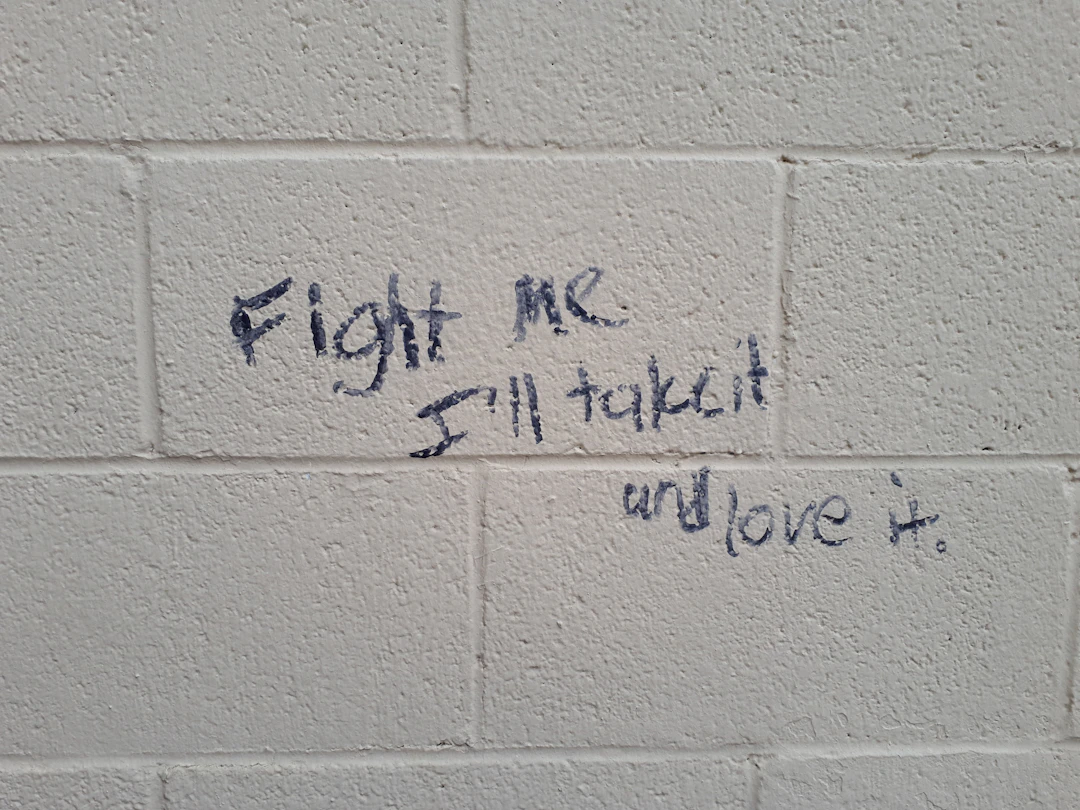 Fight me
I'll take it
and love it.